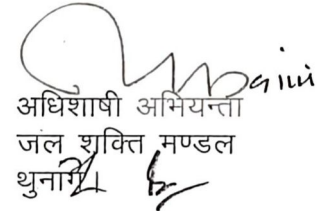 अधिशाषी अभियन्ता
जल शक्ति मण्डल
थुनाग